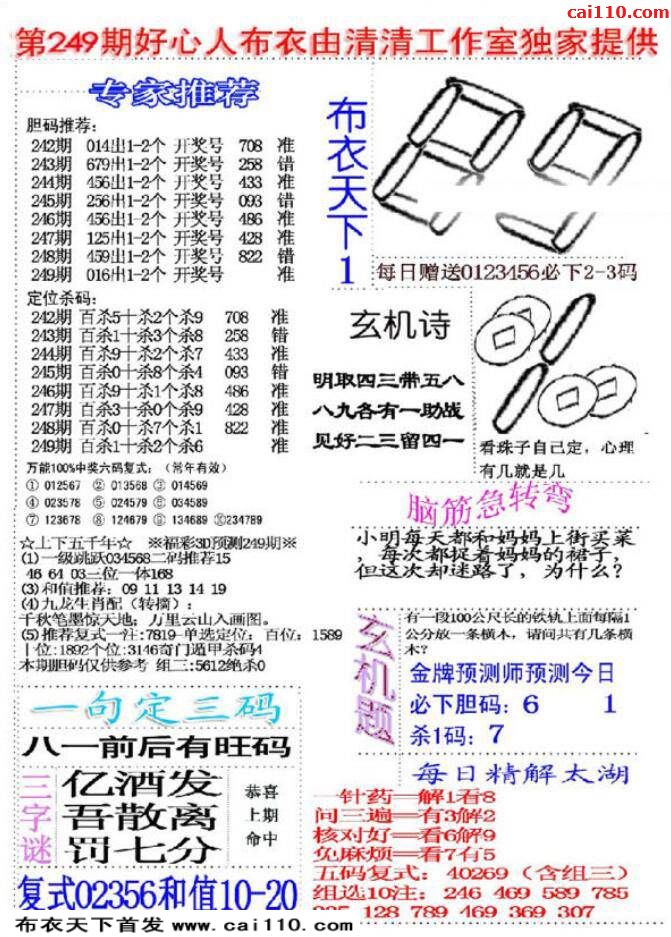 cai110.com
第249期好心人布衣由清清工作室独家提供
专家推荐
胆码推荐:
242期 014出1-2个 开奖号 708 准
243期 679出1-2个 开奖号 258 错
244期 456出1-2个 开奖号 433 准
245期 256出1-2个 开奖号 093 错
246期 456出1-2个 开奖号 486 准
247期 125出1-2个 开奖号 428 准
248期 459出1-2个 开奖号 822 错
249期 016出1-2个 开奖号 准
定位杀码:
242期 百杀5十杀2个杀9 708 准
243期 百杀1十杀3个杀8 258 错
244期 百杀9十杀2个杀7 433 准
245期 百杀0十杀8个杀4 093 错
246期 百杀9十杀1个杀8 486 准
247期 百杀3十杀0个杀9 428 准
248期 百杀0十杀7个杀1 822 准
249期 百杀1十杀2个杀6 准
万能100%中奖六码复式:(常年有效)
① 012567 ② 013568 ③ 014569
④ 023578 ⑤ 024579 ⑥ 034589
⑦ 123678 ⑧ 124679 ⑨ 134689 ⑩234789
☆上下五千年☆ ※福彩3D预测249期※
(1)一级跳跃034568二码推荐15
46 64 03三位一体168
(3)和值推荐: 09 11 13 14 19
(4)九龙生肖配(转摘):
千秋笔墨惊天地; 万里云山入画图。
(5)推荐复式一注:7819-单选定位: 百位: 1589
十位:1892个位:3146奇门遁甲杀码4
本期胆码仅供参考 组三:5612绝杀0
一句定三码
八一前后有旺码
三字谜
亿酒发
吾散离
罚七分
恭喜
上期
命中
复式02356和值10-20
布衣天下首发 www.cai110.com
布衣天下1
每日赠送0123456必下2-3码
玄机诗
明取四三带五八
八九各有一助战
见好二三留四一
看珠子自己定，心理
有几就是几
脑筋急转弯
小明每天都和妈妈上街买菜
，每次都捉着妈妈的裙子，
但这次却迷路了，为什么?
玄机题
有一段100公尺长的铁轨上面每隔1
公分放一条横木，请问共有几条横
木?
金牌预测师预测今日
必下胆码: 6 1
杀1码: 7
每日精解太湖
一针药——解1看8
问三遍——有3解2
核对好——看6解9
免麻烦——看7有5
五码复式: 40269 (含组三)
组选10注: 246 469 589 785
128 789 469 369 307